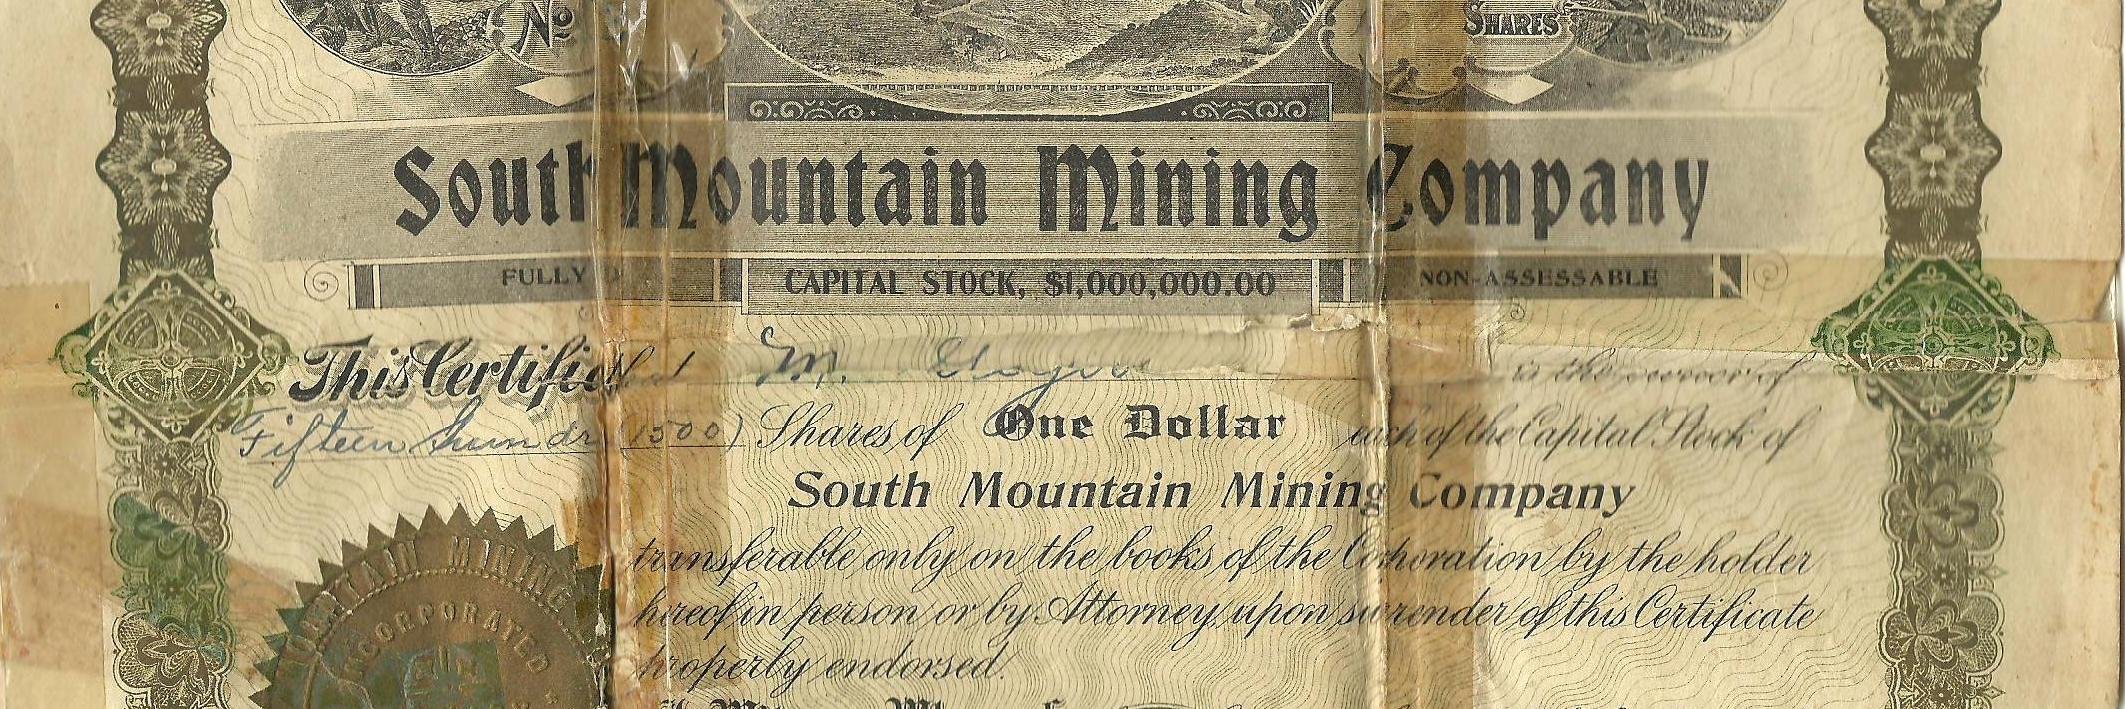 No
SHARES
South Mountain Mining Company
FULLY
CAPITAL STOCK, $1,000,000.00
NON-ASSESSABLE
This Certifies that M. is the owner of
Fifteen hundr (1500) Shares of One Dollar each of the Capital Stock of
South Mountain Mining Company
transferable only on the books of the Corporation by the holder
hereof in person or by Attorney, upon surrender of this Certificate
properly endorsed.
MOUNTAIN MINING
INCORPORATED